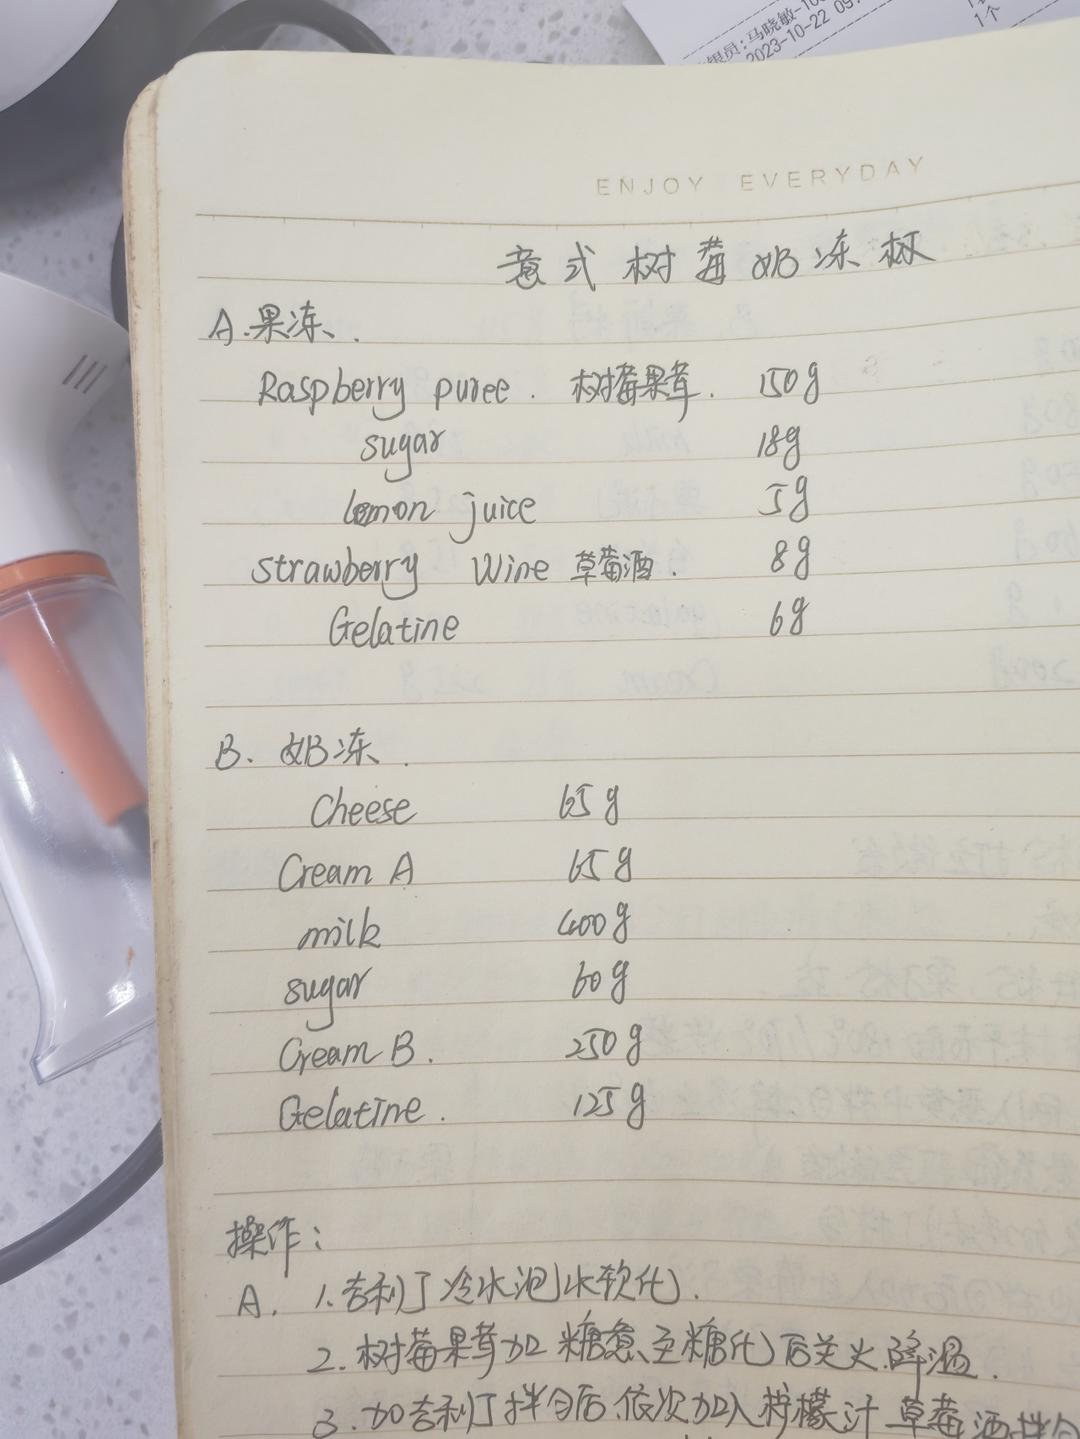 银员:马晓敏-100
2023-10-22 09:
1个
ENJOY EVERYDAY
意式树莓奶冻杯
A.果冻、
Raspberry puree. 树莓果茸. 150g
sugar 18g
lemon juice 5g
strawberry Wine 草莓酒. 8g
Gelatine 6g
B. 奶冻.
Cheese 65g
Cream A 65g
milk 400g
sugar 60g
Cream B. 250g
Gelatine. 125g
操作:
A. 1.吉利丁冷水泡水软化.
2.树莓果茸加糖煮至糖化后关火.降温.
3.加吉利丁拌匀后.依次加入柠檬汁草莓酒拌匀